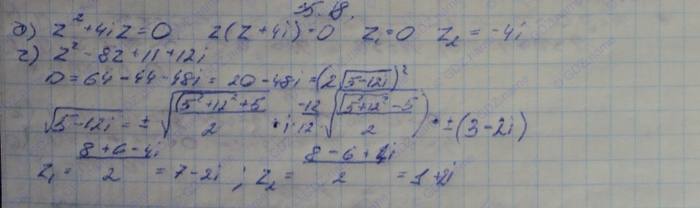 5.18.
д) z² + 4iz = 0 z(z + 4i) = 0 z₁ = 0 z₂ = -4i
г) z² - 8z + 11 + 12i
D = 64 - 44 - 48i = 20 - 48i = (2√(5-12i))²
√(5-12i) = ± √((√(5²+12²)+5)/2) + i · (-12/12) √((√(5²+12²)-5)/2) = ±(3-2i)
z₁ = (8+6-4i)/2 = 7-2i ; z₂ = (8-6+4i)/2 = 1+2i